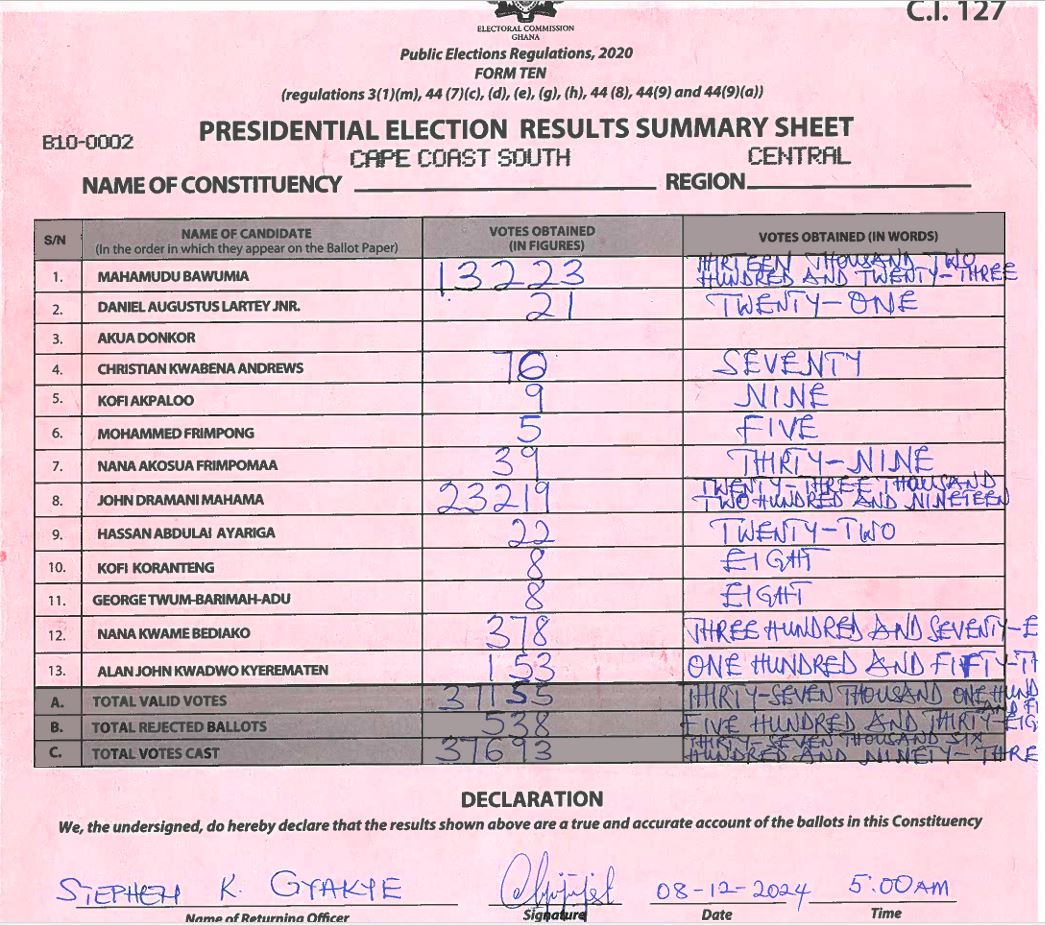 C.I. 127
ELECTORAL COMMISSION
GHANA
Public Elections Regulations, 2020
FORM TEN
(regulations 3(1)(m), 44 (7)(c), (d), (e), (g), (h), 44 (8), 44(9) and 44(9)(a))
PRESIDENTIAL ELECTION RESULTS SUMMARY SHEET
B10-0002
CAPE COAST SOUTH CENTRAL
NAME OF CONSTITUENCY REGION
S/N NAME OF CANDIDATE (In the order in which they appear on the Ballot Paper) VOTES OBTAINED (IN FIGURES) VOTES OBTAINED (IN WORDS)
1. MAHAMUDU BAWUMIA 13223 THIRTEEN THOUSAND TWO HUNDRED AND TWENTY-THREE
2. DANIEL AUGUSTUS LARTEY JNR. 21 TWENTY-ONE
3. AKUA DONKOR
4. CHRISTIAN KWABENA ANDREWS 70 SEVENTY
5. KOFI AKPALOO 9 NINE
6. MOHAMMED FRIMPONG 5 FIVE
7. NANA AKOSUA FRIMPOMAA 39 THIRTY-NINE
8. JOHN DRAMANI MAHAMA 23219 TWENTY-THREE THOUSAND TWO HUNDRED AND NINETEEN
9. HASSAN ABDULAI AYARIGA 22 TWENTY-TWO
10. KOFI KORANTENG 8 EIGHT
11. GEORGE TWUM-BARIMAH-ADU 8 EIGHT
12. NANA KWAME BEDIAKO 378 THREE HUNDRED AND SEVENTY-E
13. ALAN JOHN KWADWO KYEREMATEN 153 ONE HUNDRED AND FIFTY-TH
A. TOTAL VALID VOTES 37155 THIRTY-SEVEN THOUSAND ONE HUND AND FI
B. TOTAL REJECTED BALLOTS 538 FIVE HUNDRED AND THIRTY-EIG
C. TOTAL VOTES CAST 37693 THIRTY SEVEN THOUSAND SIX HUNDRED AND NINETY-THRE
DECLARATION
We, the undersigned, do hereby declare that the results shown above are a true and accurate account of the ballots in this Constituency
STEPHEN K. GYAKYE 08-12-2024 5:00AM
Name of Returning Officer Signature Date Time